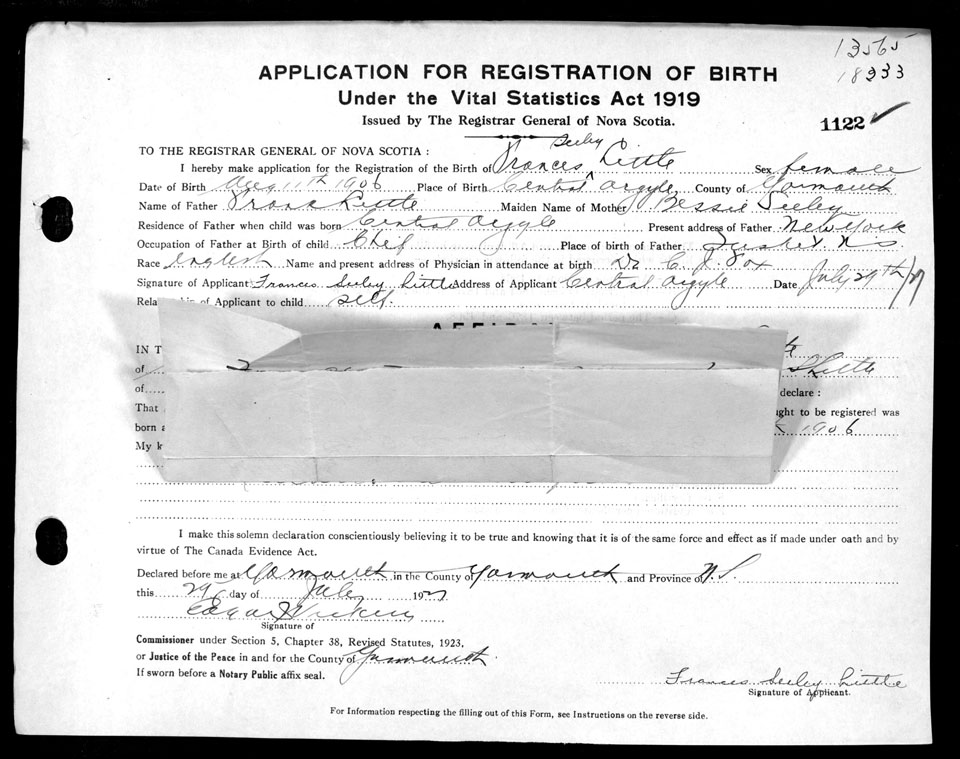 13565
18233
APPLICATION FOR REGISTRATION OF BIRTH
Under the Vital Statistics Act 1919
Issued by The Registrar General of Nova Scotia.
1122
TO THE REGISTRAR GENERAL OF NOVA SCOTIA :
Seeley
I hereby make application for the Registration of the Birth of Frances Little Sex female
Date of Birth 11th 1906 Place of Birth Central Argyle County of Yarmouth
Name of Father Little Maiden Name of Mother Bessie Seeley
Residence of Father when child was born Central Argyle Present address of Father New York
Occupation of Father at Birth of child Chef Place of birth of Father N.S.
Race English Name and present address of Physician in attendance at birth Dr C. J. Fox
Signature of Applicant Frances Seeley Little Address of Applicant Central Argyle Date July 29th/27
Rela of Applicant to child self.
IN T
of Little
of declare :
That ght to be registered was
born a 1906
My k
I make this solemn declaration conscientiously believing it to be true and knowing that it is of the same force and effect as if made under oath and by
virtue of The Canada Evidence Act.
Declared before me at Yarmouth in the County of Yarmouth and Province of N.S.
this 29 day of July 1927
Edgar
Signature of
Commissioner under Section 5, Chapter 38, Revised Statutes, 1923,
or Justice of the Peace in and for the County of Yarmouth.
If sworn before a Notary Public affix seal.
Frances Seeley Little
Signature of Applicant.
For Information respecting the filling out of this Form, see Instructions on the reverse side.